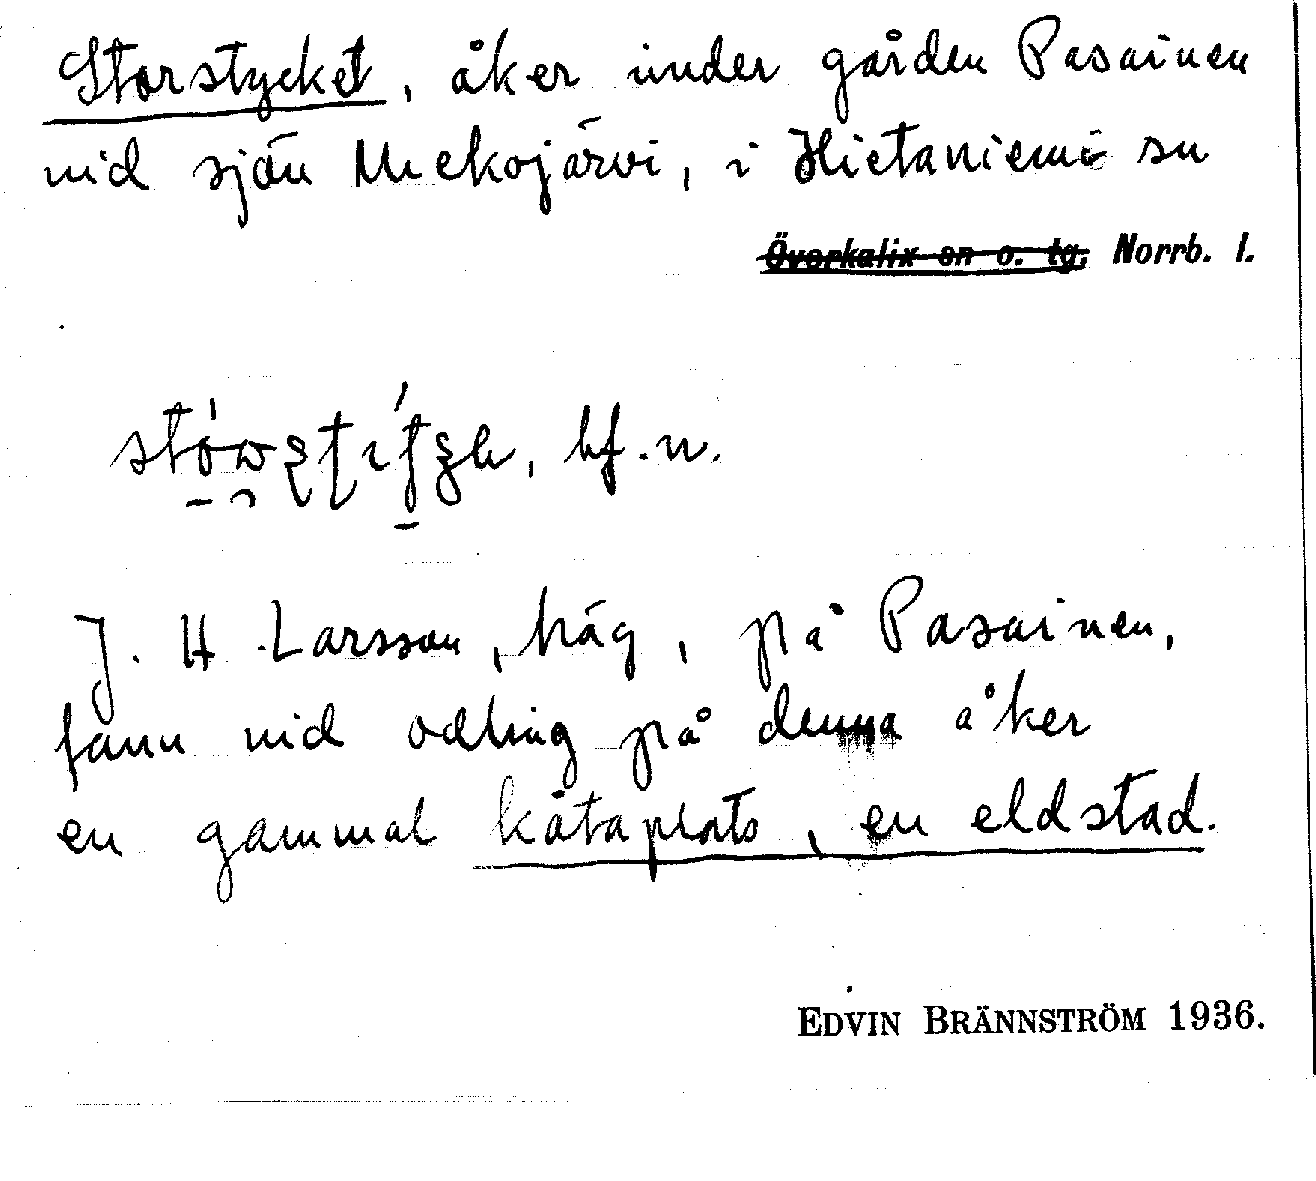 Storstycket, åker under gården Pasainen
vid sjön Miekojärvi, i Hietaniemi sn
Överkalix sn o. tg. Norrb. l.
bf.n.
J. H. Larsson, häg, på Pasainen,
fann vid odling på denna åker
en gammal kåtaplats, en eldstad.
EDVIN BRÄNNSTRÖM 1936.